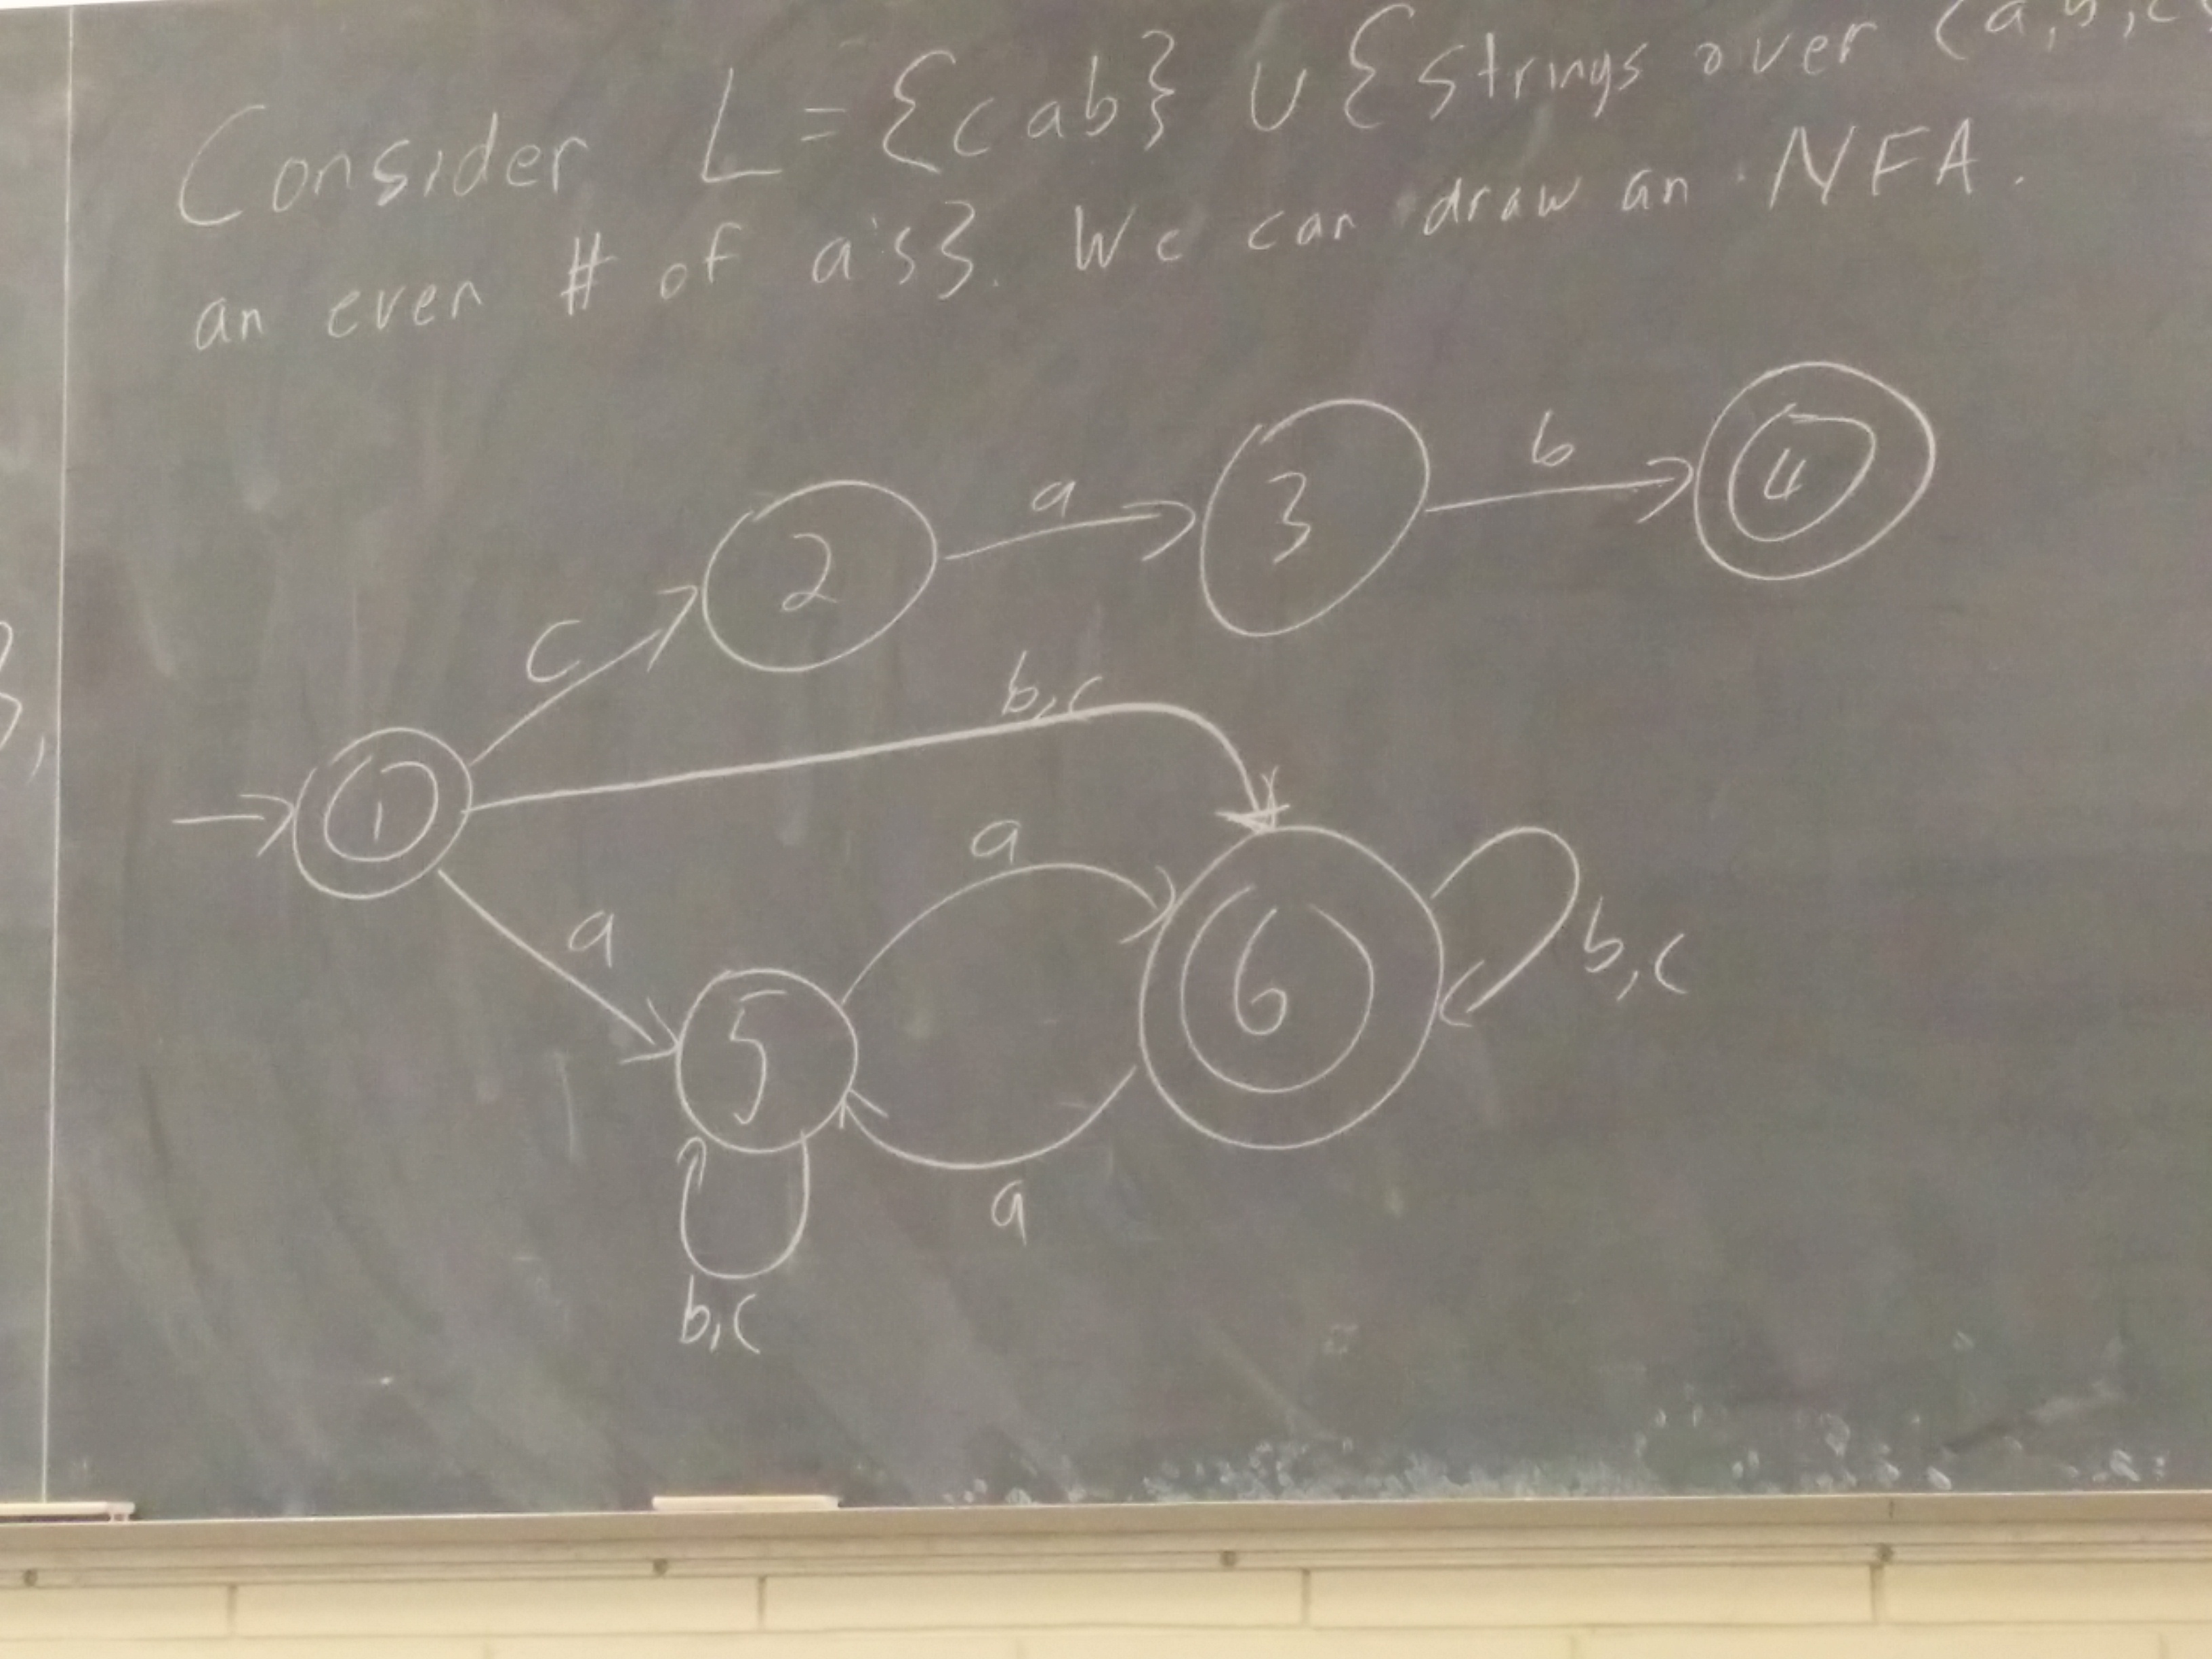 Consider L = {cab} ∪ {strings over {a,b,c
an even # of a's}. We can draw an NFA.
c
2
a
3
b
4
b,c
1
a
a
5
6
b,c
a
b,c